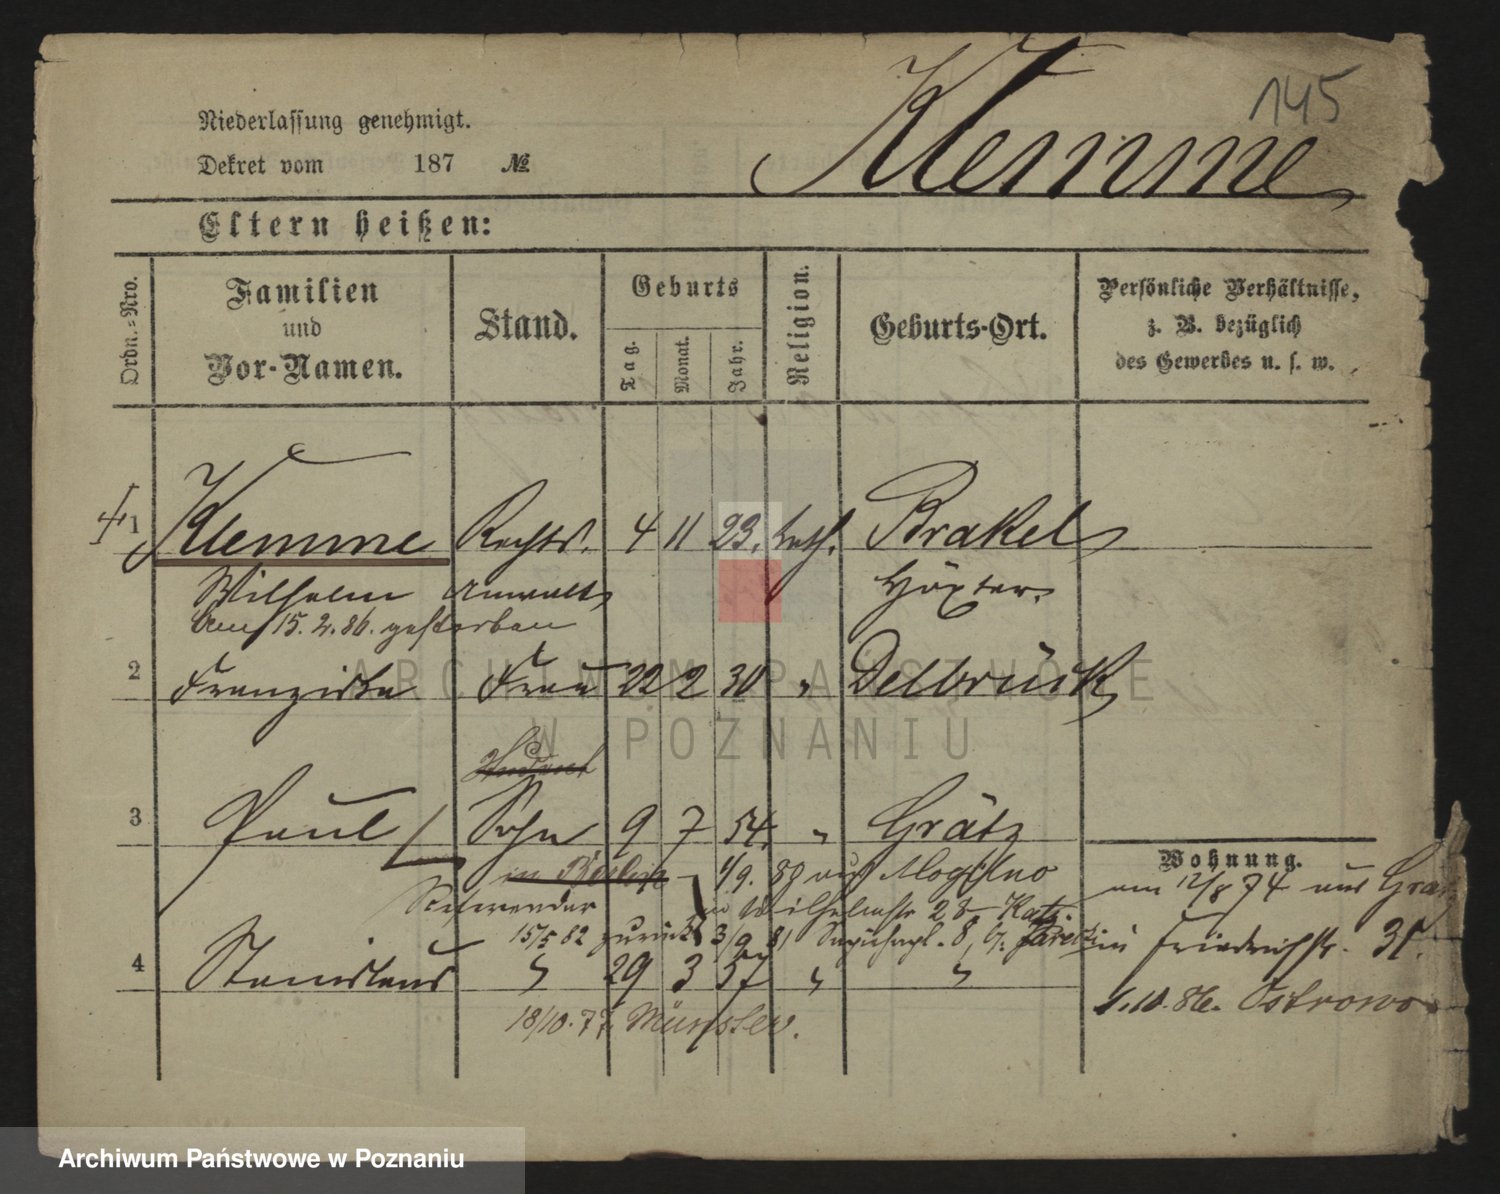 145
Klemme
Niederlassung genehmigt.
Dekret vom 187 №
Eltern heißen:
Ordn.-Nro.
Familien und Vor-Namen.
Stand.
Geburts
Tag.
Monat.
Jahr.
Religion.
Geburts-Ort.
Persönliche Verhältnisse,
z. B. bezüglich
des Gewerbes u. s. w.
1 Klemme Rechts. 4 11 23. kath. Brakel
Wilhelm Anwalt Höxter
Am 15. 2. 86. gestorben
2 Franziska Frau 22 2 30 " Delbrück
Student
3 Paul Sohn 9 7 54. " Grätz
in 1/9. 80 aus Mogilno
Wohnung.
am 12/8 74 aus Grätz
Referendar Wilhelmstr 28 Katz.
15/5 82 zurück 3/9 81 Sapiehapl. 8,
Friedrichstr. 31.
4 Stanislaus " 29 3 57 " "
1.10.86. Ostrowo
18/10.77 Münster.
ARCHIWUM PAŃSTWOWE
W POZNANIU
Archiwum Państwowe w Poznaniu